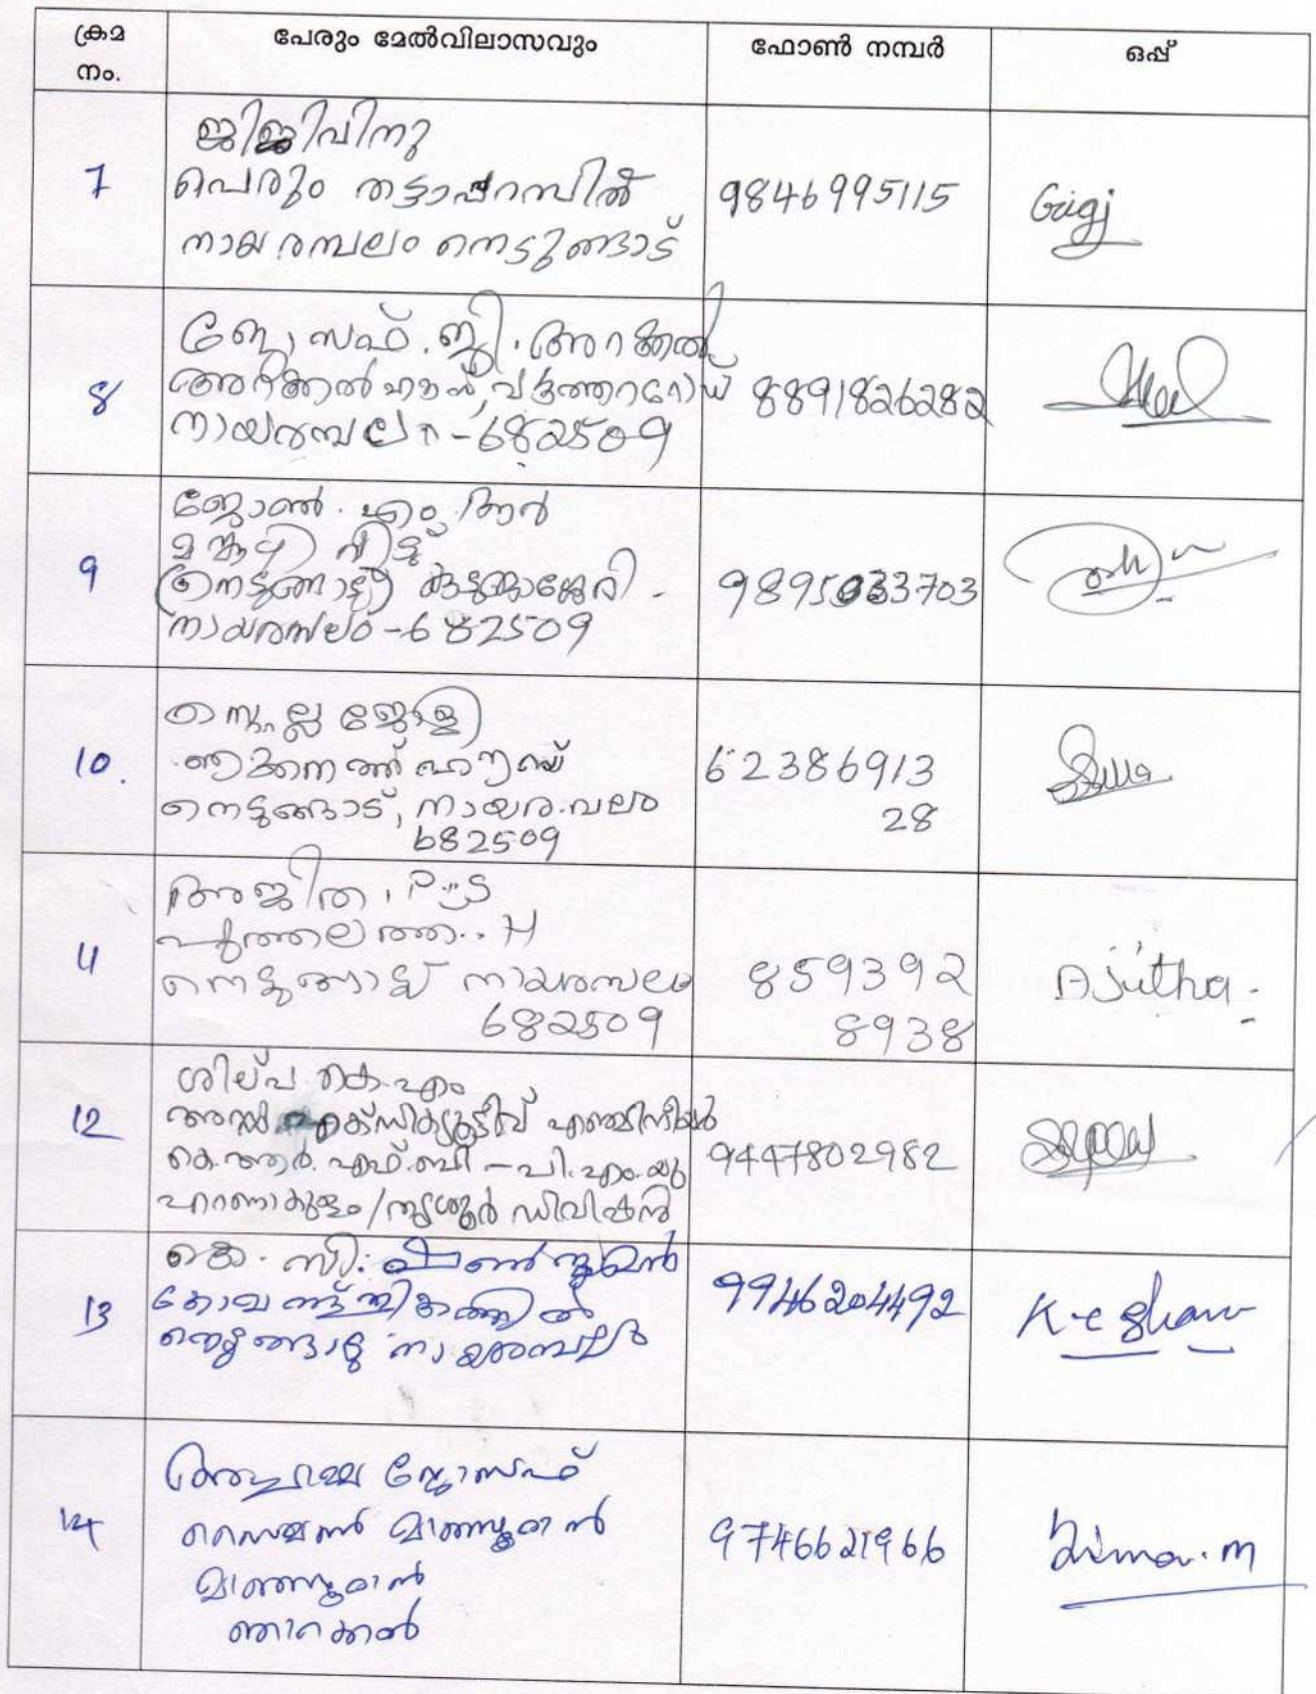 ക്രമ നം.
പേരും മേൽവിലാസവും
ഫോൺ നമ്പർ
ഒപ്പ്
7
ജിജിവിനു
പെരും തട്ടാപറമ്പിൽ
നായരമ്പലം നെടുങ്ങാട്
9846995115
Gigj
8
ജോസഫ്.ജി.അറക്കൽ
അറക്കൽ ഹൗസ്,
നായരമ്പലം-682509
8891826282
9
ജോൺ.എം.ആർ
വീട്ട്
നായരമ്പലം-682509
9895033703
10.
സ്റ്റെല്ല ജോളി
ഹൗസ്
നെടുങ്ങാട്, നായരമ്പലം
682509
62386913
28
11
അജിത. P.S
H
നെടുങ്ങാട് നായരമ്പലം
682509
859392
8938
Ajitha.
12
ശില്പ കെ.എം
അസി എക്സിക്യൂട്ടീവ് എഞ്ചിനീയർ
കെ.ആർ.എഫ്.ബി - പി.എം.യു
എറണാകുളം/തൃശ്ശൂർ ഡിവിഷൻ
9447802982
13
കെ.സി. ഷൺമുഖൻ
നെടുങ്ങാട് നായരമ്പലം
9946204492
K-c Shan
14
ജോസഫ്
സൈമൺ മാഞ്ഞൂരാൻ
മാഞ്ഞൂരാൻ
ഞാറക്കൽ
9746621966